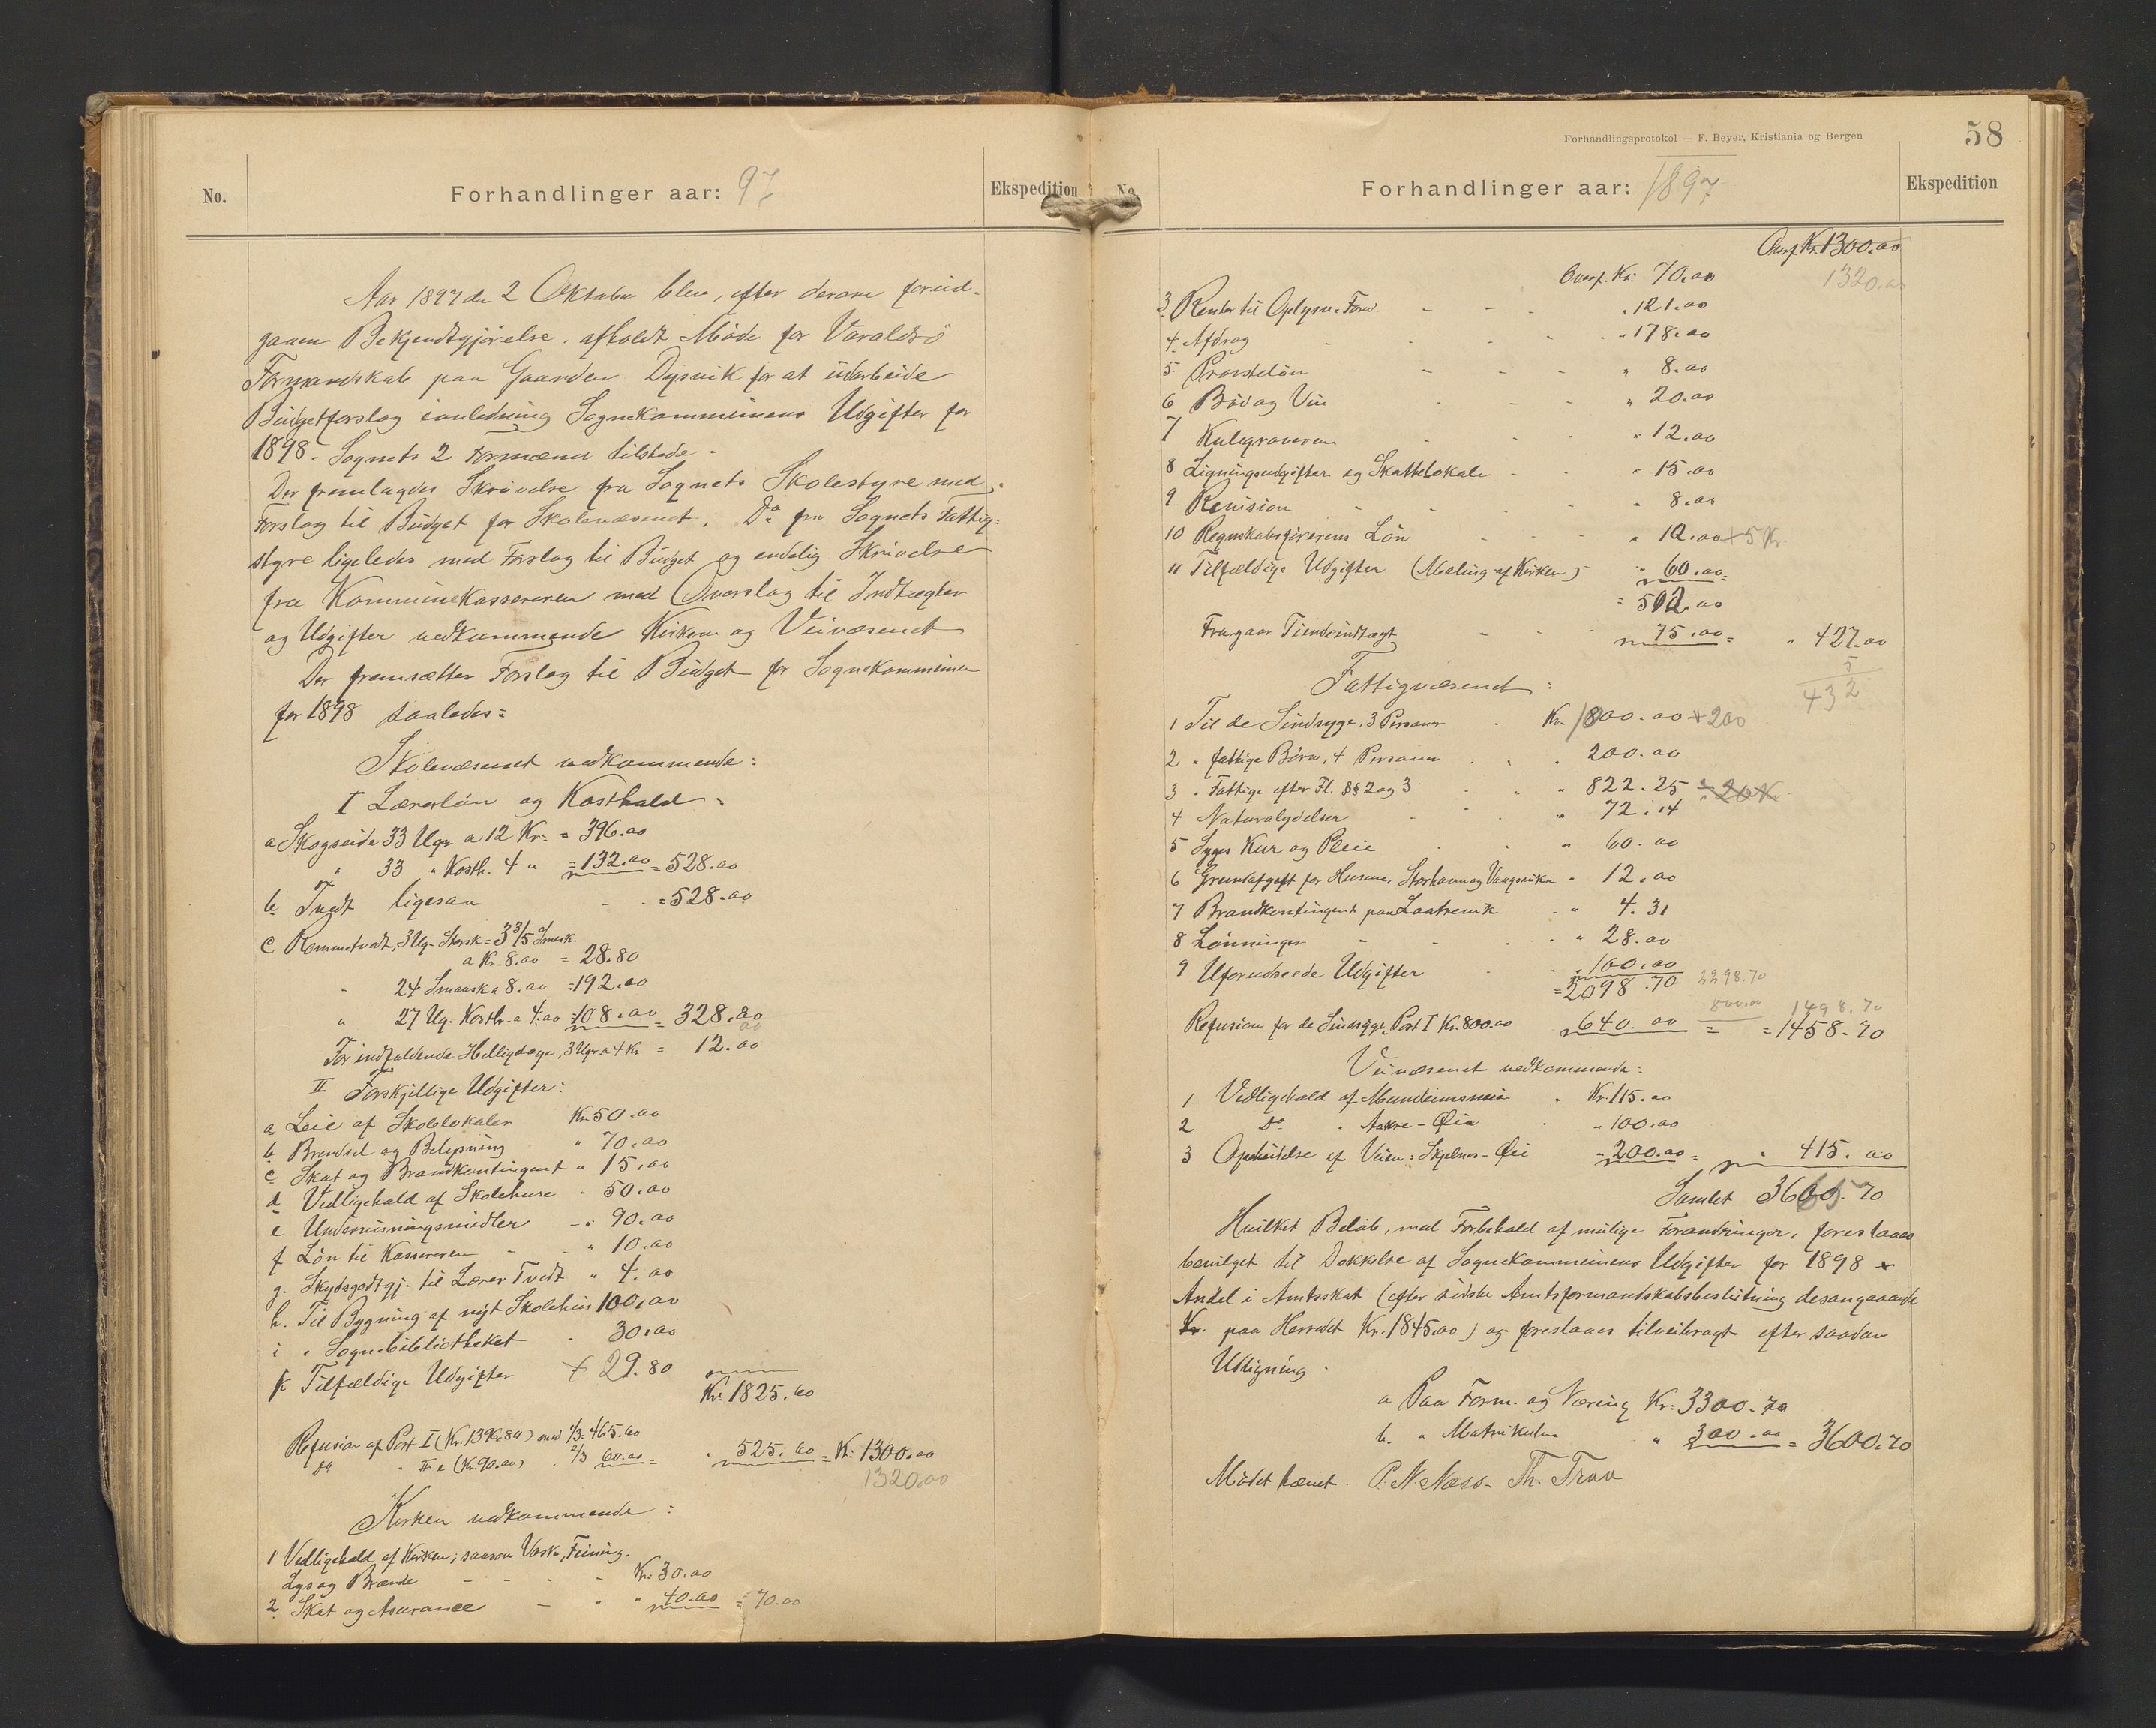 No.
Forhandlinger aar: 97
Ekspedition
Aar 1897 den 2 Oktober blev, efter derom forud-
gaaen Bekjendtgjörelse, afholdt Möde for Varaldsö
Formandskab paa Gaarden Dysvik for at udarbeide
Budgetforslag ianledning Sognekommunens Udgifter for
1898. Sognets 2 Formænd tilstede.
Der fremlagdes Skrivelse fra Sognets Skolestyre med
Forslag til Budget for Skolevæsenet, Do fra Sognets Fattig-
styre ligeledes med Forslag til Budget og endelig Skrivelse
fra Kommunekassereren med Overslag til Indtægter
og Udgifter vedkommende Kirken og Veivæsenet
Der fremsættes Forslag til Budget for Sognekommunen
for 1898 saaledes:
Skolevæsenet vedkommende:
I Lærerlön og Kosthold:
a Skogseide 33 Uger a 12 Kr. = 396.00
" 33 " Kosth. 4 " = 132.00 = 528.00
b Tvedt ligesaa - - = 528.00
c Rommetvedt, 3 Ug. Storsk = 3 3/5 Smaask.
a Kr. 8.00 = 28.80
" 24 Smaask a 8.00 = 192.00
" 27 Ug. Kosth. a 4.00 = 108.00 = 328.80
For indfaldende Helligdage, 3 Uger a 4 Kr = 12.00
II Forskjellige Udgifter:
a Leie af Skolelokaler Kr. 50.00
b Brendsel og Belysning " 70.00
c Skat og Brandkontingent " 15.00
d Vedligehold af Skolehuse " 50.00
e Undervisningsmidler - " 90.00
f Lön til Kassereren - " 10.00
g. Skydsgodtgj. til Lærer Tvedt " 4.00
h. Til Bygning af nyt Skolehus 100.00
i " Sognebibliotheket - 30.00
k Tilfældige Udgifter + 29.80
Kr. 1825.60
Refusion af Post I (Kr. 1396.80) med 1/3 = 465.60
Do " II e (Kr. 90.00) " 2/3 60.00 = " 525.60 = Kr. 1300.00
1320.00
Kirken vedkommende:
1 Vedligehold af Kirken; saasom Vask, Feining.
Lys og Brænde - - - - Kr. 30.00
2. Skat og Assurance - " " 40.00 = 70.00
Forhandlingsprotokol — F. Beyer, Kristiania og Bergen
58
No.
Forhandlinger aar: 1897
Ekspedition
Overf. Kr. 1300.00
1320.00
Overf. Kr. 70.00
3 Renter til Oplysn. Fond. - - - " 121.00
4. Afdrag - - - - " 178.00
5 Provstelön - - - " 8.00
6 Bröd og Vin - - - " 20.00
7 Kulegraveren - - - " 12.00
8 Ligningsudgifter og Skattelokale - " 15.00
9 Revision - - - - " 8.00
10 Regnskabsförerens Lön - - - " 10.00 + 5 Kr.
11 Tilfældige Udgifter (Maling af Kirken) - " 60.00
= 502.00
Fragaar Tiendeindtægt - - - 75.00 = " 427.00
5
432
Fattigvæsenet:
1 Til de Sindsyge, 3 Personer - Kr. 800.00 + 200
2 " fattige Börn, 4 Personer - - 200.00
3 " Fattige efter Fl. §§ 2 og 3 - - " 822.25
4 Naturalydelser - - " 72.14
5 Syges Kur og Pleie - - " 60.00
6 Grundafgift for Husene, Storhavn og Vaagsviken " 12.00
7 Brandkontingent paa - " 4.31
8 Lönninger - - - " 28.00
9 Uforudseede Udgifter - - 100.00
= 2098.70 2298.70
800.00 1498.70
Refusion for de Sindsyge, Post I Kr. 800.00 640.00 = = 1458.70
Veivæsenet vedkommende:
1 Vedligehold af Mundeimsveien " Kr. 115.00
2 Do " Aakre - Øie - " 100.00
3 Opdeidelse af Veien: Skjelnes - Øie - 200.00 = " 415.00
Samlet 3600.70
Hvilket Belöb, med Forbehold af mulige Forandringer, foreslaaes
bevilget til Dækkelse af Sognekommunens Udgifter for 1898 +
Andel i Amtsskat (efter sidste Amtsformandskabsbeslutning desangaaende
paa Herredet Kr. 1845.00) og foreslaaes tilveibragt efter saadan
Udligning.
a Paa Form. og Næring Kr. 3300.70
b. " Matrikulen " 300.00 = 3600.70
Mödet hævet. P. N. Næss - Th. Troo